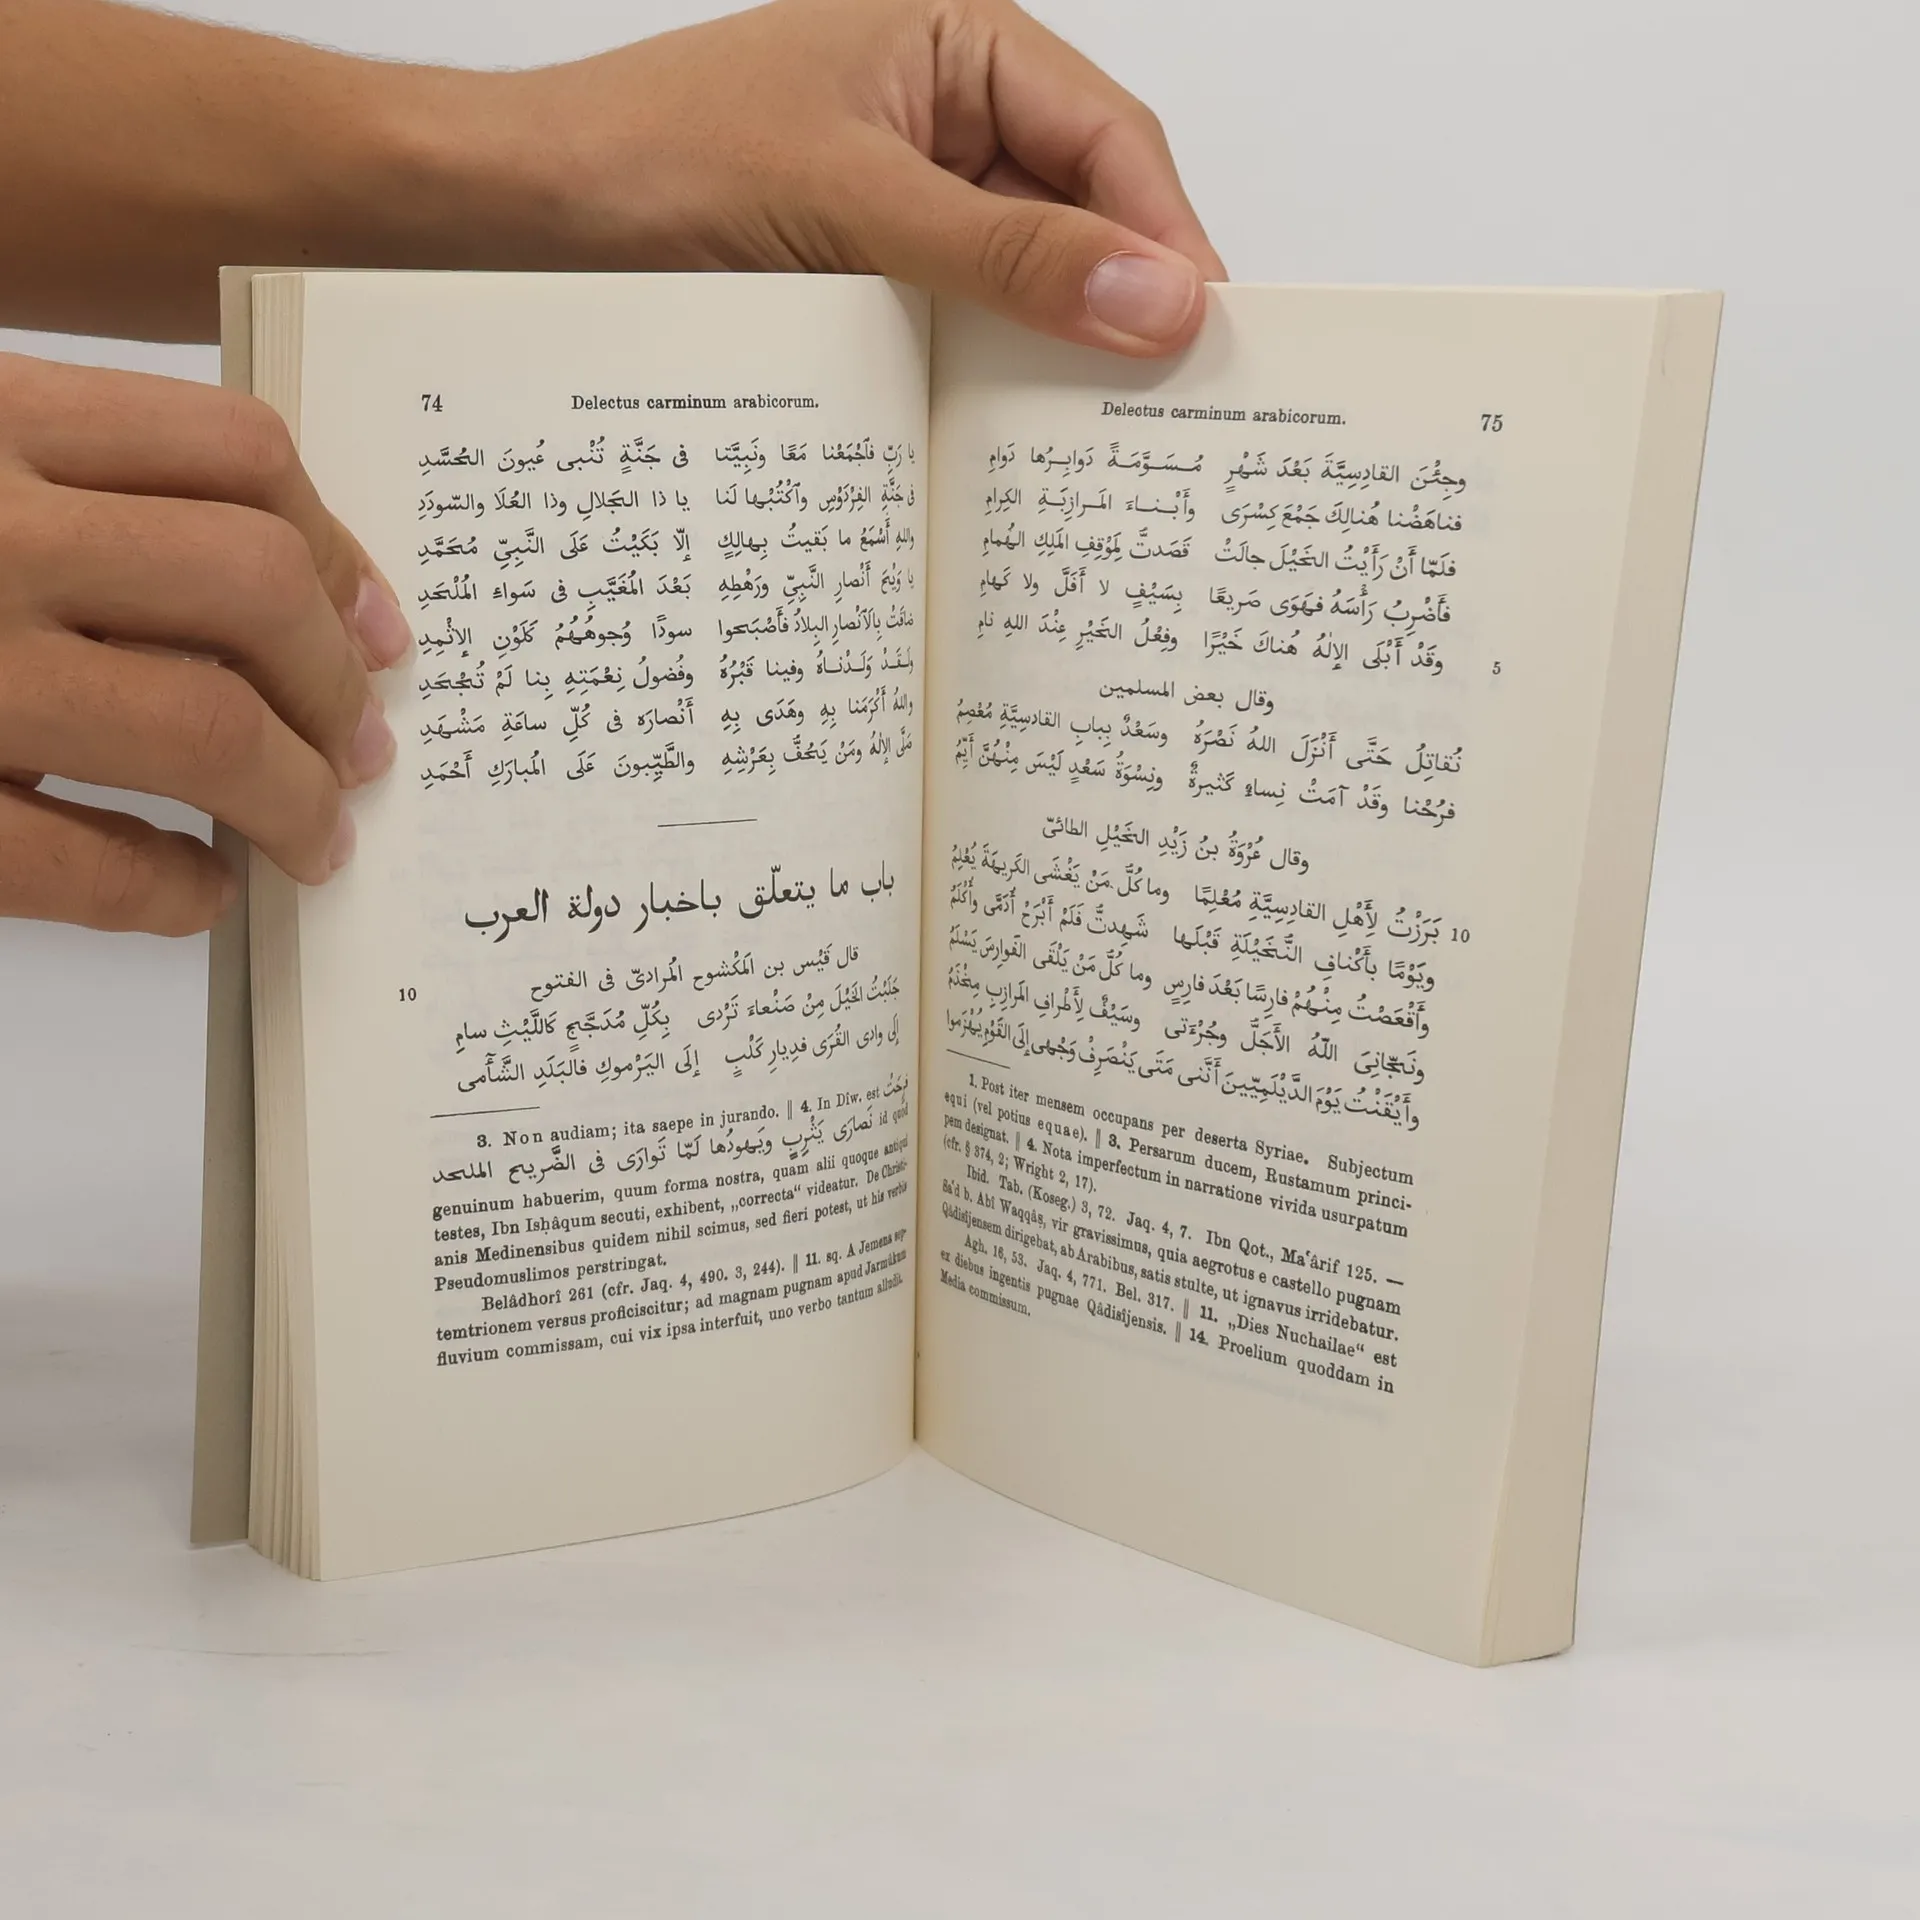 74
Delectus carminum arabicorum.
يا رَبِّ فَاجْمَعْنا مَعًا ونَبِيَّنا فى جَنَّةٍ تُنْبى عُيونَ الحُسَّدِ
فى جَنَّةِ الفِرْدَوْسِ وٱكْتُبْها لَنا يا ذا الجَلالِ وذا العُلَا والسّودَدِ
واللهِ أَسْمَعُ ما بَقيتُ بِهالِكٍ إلّا بَكَيْتُ عَلَى النَّبِيِّ مُحَمَّدِ
يا وَيْحَ أَنْصارِ النَّبِيِّ ورَهْطِهِ بَعْدَ المُغَيَّبِ فى سَواءِ المُلْحَدِ
ضاقَتْ بِالْأَنْصارِ البِلادُ فأَصْبَحوا سودًا وُجوهُهُمُ كَلَوْنِ الإثْمِدِ
ولَقَدْ وَلَدْناهُ وفينا قَبْرُهُ وفُضولُ نِعْمَتِهِ بِنا لَمْ تُجْحَدِ
واللهُ أَكْرَمَنا بِهِ وهَدَى بِهِ أَنْصارَه فى كُلِّ ساعَةِ مَشْهَدِ
صَلَّى الإلٰهُ ومَنْ يَحُفُّ بِعَرْشِهِ والطَّيِّبونَ عَلَى المُبارَكِ أَحْمَدِ
باب ما يتعلّق باخبار دولة العرب
قال قَيْس بن المَكْشوح المُرادىّ فى الفتوح
10
جَلَبْتُ الخَيْلَ مِنْ صَنْعاءَ تَرْدى بِكُلِّ مُدَجَّجٍ كَاللَّيْثِ سامِ
إلَى وادى القُرَى فدِيارِ كَلْبٍ إلَى اليَرْموكِ فالبَلَدِ الشَّأَمى
3. Non audiam; ita saepe in jurando. ‖ 4. In Dîw. est فرحَتْ
نَصارَى يَثْرِبٍ ويَهودُها لَمّا تَوارَى فى الضَّريحِ الملحد id quod
genuinum habuerim, quum forma nostra, quam alii quoque antiqui
testes, Ibn Isḥâqum secuti, exhibent, „correcta“ videatur. De Christi-
anis Medinensibus quidem nihil scimus, sed fieri potest, ut his verbis
Pseudomuslimos perstringat.
Belâdhorî 261 (cfr. Jaq. 4, 490. 3, 244). ‖ 11. sq. A Jemena sep-
temtrionem versus proficiscitur; ad magnam pugnam apud Jarmûkum
fluvium commissam, cui vix ipsa interfuit, uno verbo tantum alludit.
Delectus carminum arabicorum.
75
وجِئْنَ القادِسِيَّةَ بَعْدَ شَهْرٍ مُسَوَّمَةً دَوابِرُها دَوامِ
فناهَضْنا هُنالِكَ جَمْعَ كِسْرَى وأَبْناءَ المَرازِبَةِ الكِرامِ
فلَمّا أَنْ رَأَيْتُ الخَيْلَ جالَتْ قَصَدتُّ لِمَوْقِفِ المَلِكِ الهُمامِ
فأَضْرِبُ رَأْسَهُ فهَوَى صَريعًا بِسَيْفٍ لا أَفَلَّ ولا كَهامِ
وقَدْ أَبْلَى الإلٰهُ هُناكَ خَيْرًا وفِعْلُ الخَيْرِ عِنْدَ اللهِ نامِ
5
وقال بعض المسلمين
نُقاتِلُ حَتَّى أَنْزَلَ اللهُ نَصْرَهُ وسَعْدٌ بِبابِ القادِسِيَّةِ مُعْصِمُ
فرُحْنا وقَدْ آمَتْ نِساءٌ كَثيرَةٌ ونِسْوَةُ سَعْدٍ لَيْسَ مِنْهُنَّ أَيِّمُ
وقال عُرْوَةُ بنُ زَيْدِ الخَيْلِ الطائىّ
بَرَزْتُ لِأَهْلِ القادِسِيَّةِ مُعْلِمًا وما كُلُّ مَنْ يَغْشَى الكَريهَةَ يُعْلِمُ
10
ويَوْمًا بأَكْنافِ النُّخَيْلَةِ قَبْلَها شَهِدتُّ فَلَمْ أَبْرَحْ أُدَمَّى وأُكْلَمُ
وأَقْعَصْتُ مِنْهُمْ فارِسًا بَعْدَ فارِسٍ وما كُلُّ مَنْ يَلْقَى الفَوارِسَ يَسْلَمُ
ونَجّانِىَ اللّٰهُ الأَجَلُّ وجُرْءَتى وسَيْفٌ لِأَطْرافِ المَرازِبِ مِخْذَمُ
وأَيْقَنْتُ يَوْمَ الدَّيْلَمِيّينَ أَنَّنى مَتَى يَنْصَرِفْ وَجْهى إلَى القَوْمِ يُهْزَموا
1. Post iter mensem occupans per deserta Syriae. Subjectum
equi (vel potius equae). ‖ 3. Persarum ducem, Rustamum princi-
pem designat. ‖ 4. Nota imperfectum in narratione vivida usurpatum
(cfr. § 374, 2; Wright 2, 17).
Ibid. Tab. (Koseg.) 3, 72. Jaq. 4, 7. Ibn Qot., Maʿârif 125. —
Saʿd b. Abî Waqqâṣ, vir gravissimus, quia aegrotus e castello pugnam
Qâdisîjensem dirigebat, ab Arabibus, satis stulte, ut ignavus irridebatur.
Agh. 16, 53. Jaq. 4, 771. Bel. 317. ‖ 11. „Dies Nuchailae“ est
ex diebus ingentis pugnae Qâdisîjensis. ‖ 14. Proelium quoddam in
Media commissum.